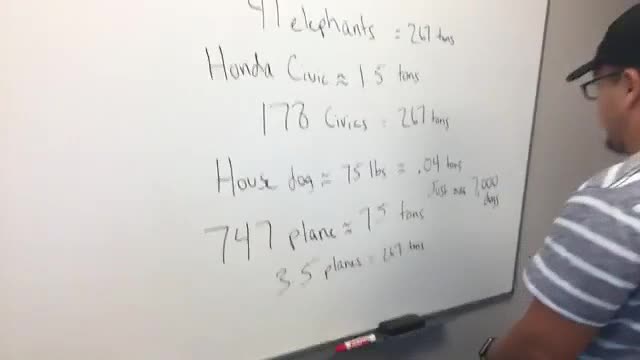 41 elephants = 267 tons
Honda Civic ≈ 1.5 tons
178 Civics = 267 tons
House dog ≈ 75 lbs = .04 tons
Just over 7,000 dogs
747 plane ≈ 75 tons
3.5 planes = 267 tons